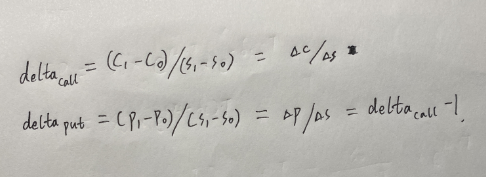 delta call = (C₁ - C₀)/(S₁ - S₀) = ΔC/ΔS
delta put = (P₁ - P₀)/(S₁ - S₀) = ΔP/ΔS = delta call - 1.